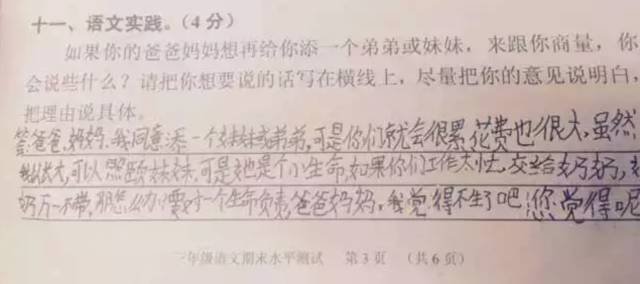 十一、语文实践。(4分)
如果你的爸爸妈妈想再给你添一个弟弟或妹妹，来跟你商量，你
会说些什么？请把你想要说的话写在横线上，尽量把你的意见说明白，
把理由说具体。
答:爸爸,妈妈.我同意添一个妹妹或弟弟,可是你们就会很累,花费也很大,虽然
我长大了,可以照顾妹妹,可是她是个小生命,如果你们工作太忙,交给奶奶,
奶万一不带,那怎么办?要对一个生命负责,爸爸妈妈,我觉得不生了吧,您觉得呢
三年级语文期末水平测试 第3页 (共6页)